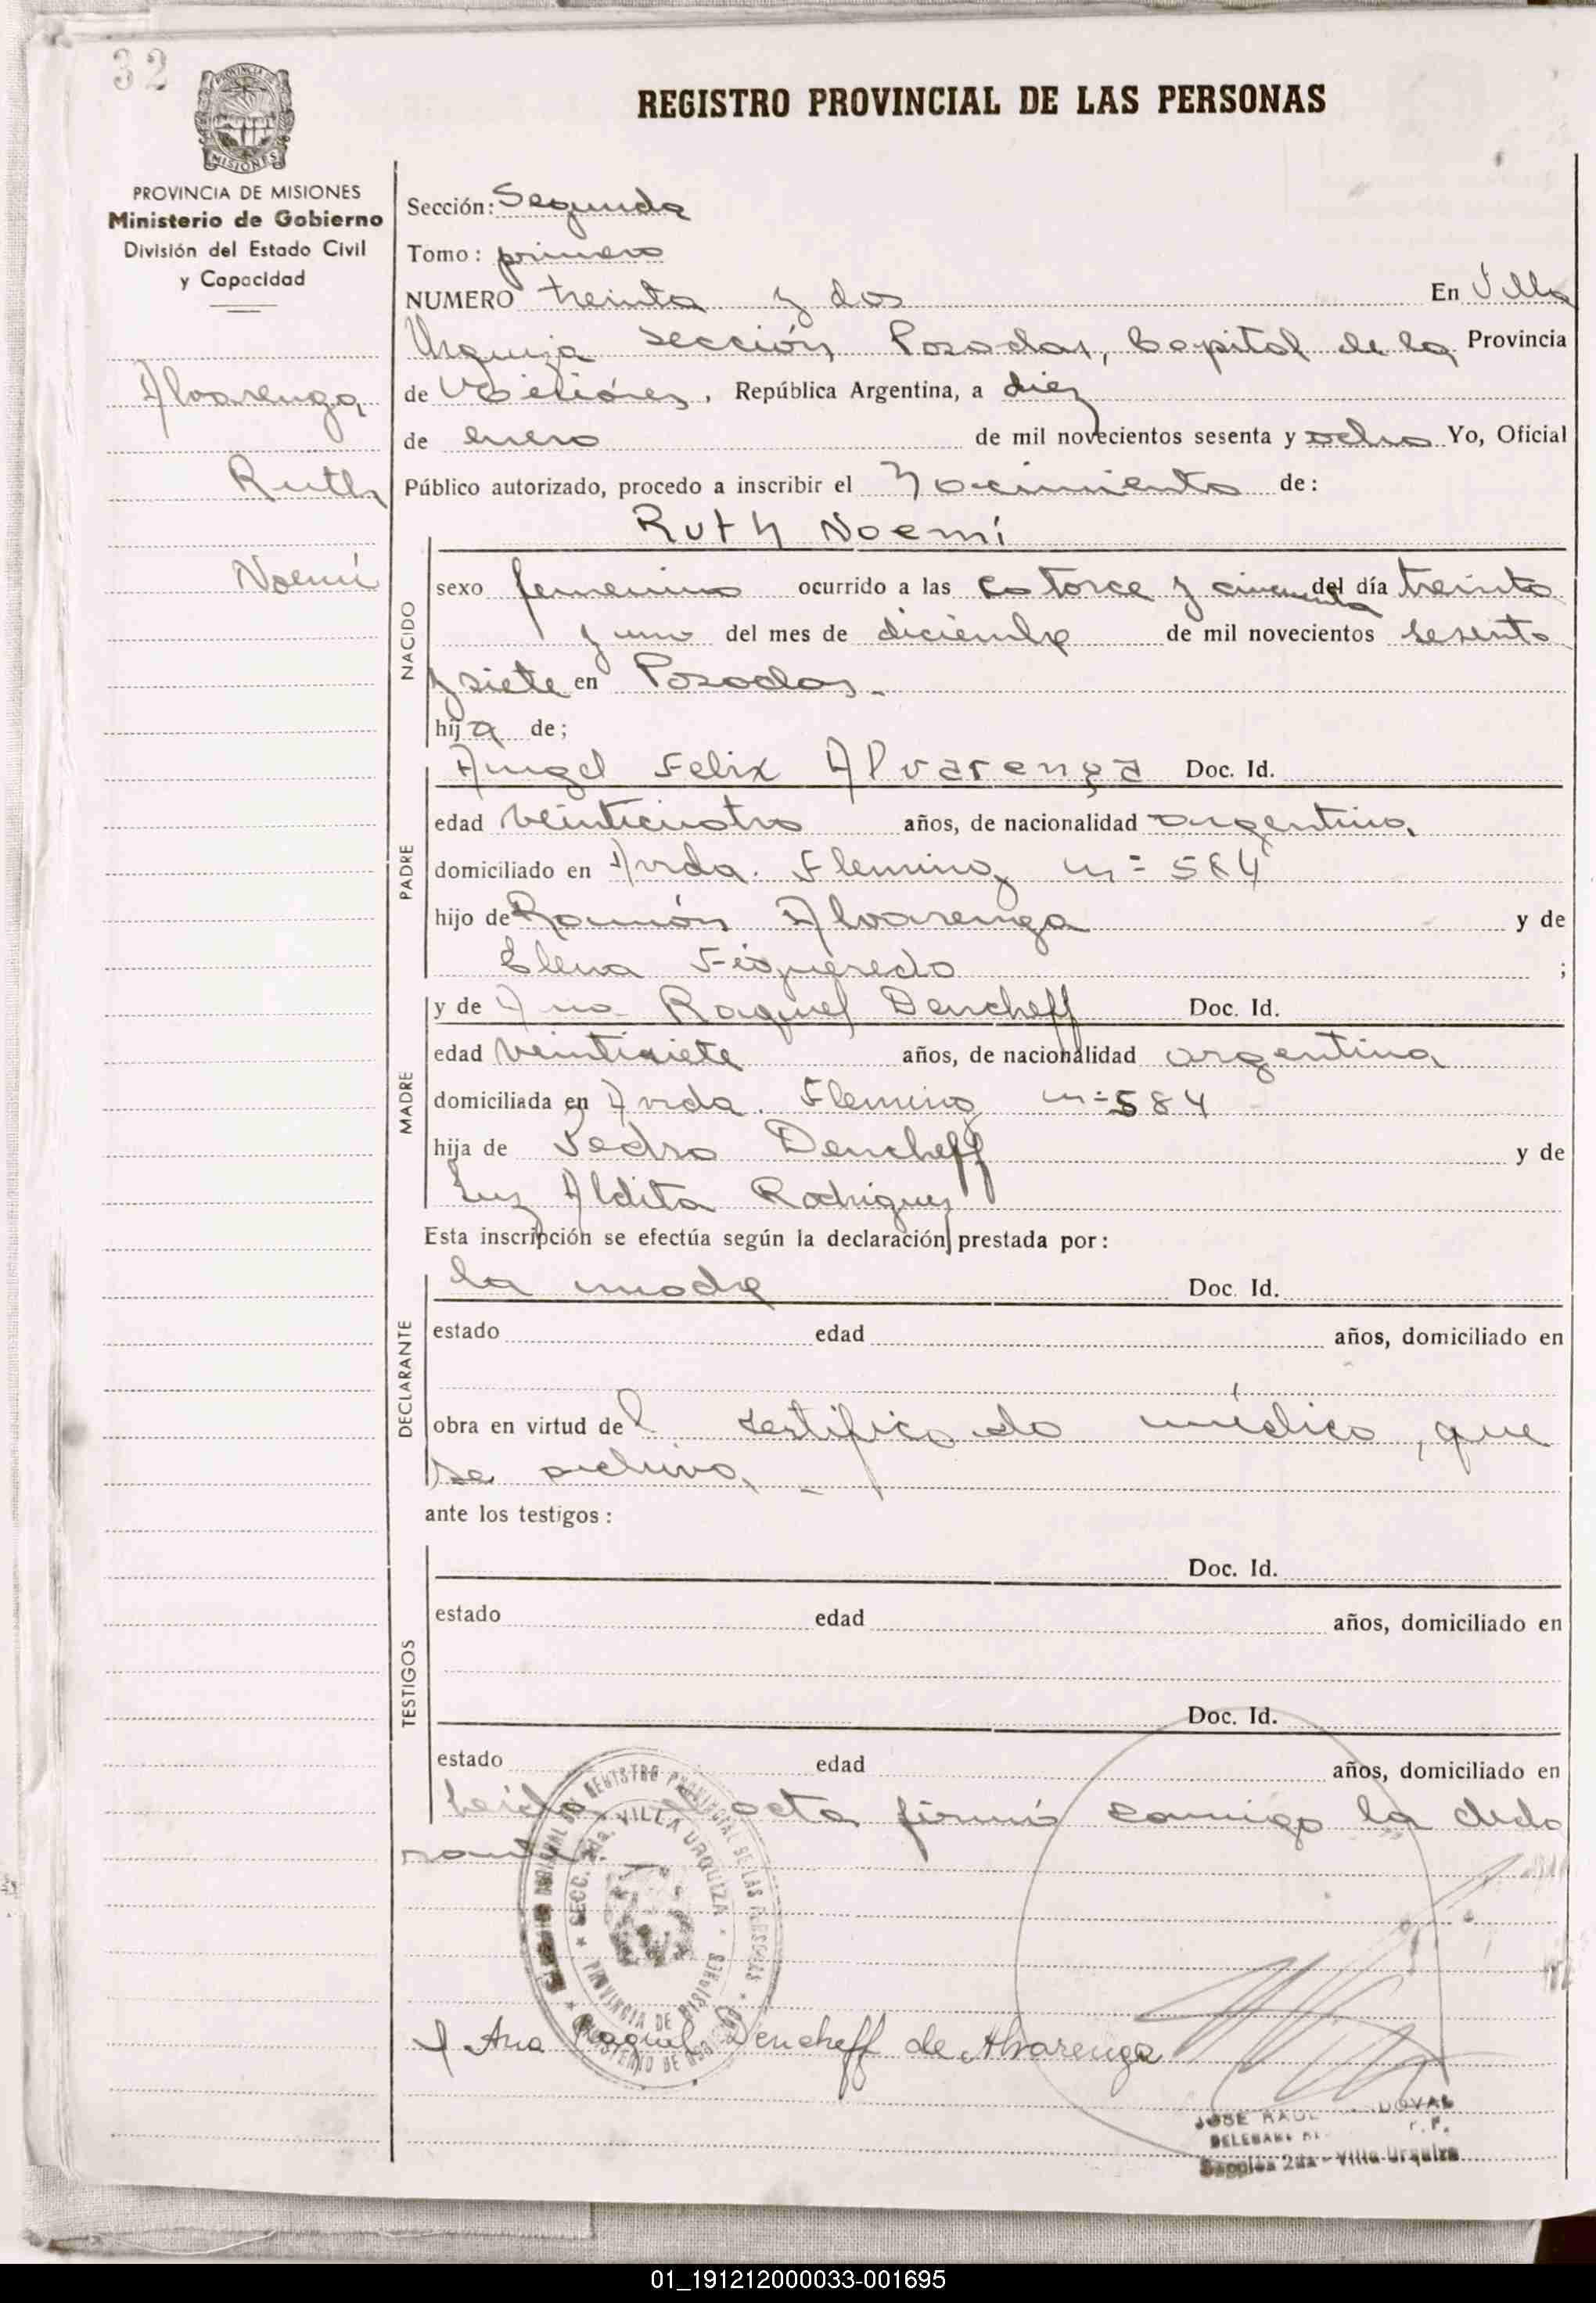 32
REGISTRO PROVINCIAL DE LAS PERSONAS
PROVINCIA DE MISIONES
Ministerio de Gobierno
División del Estado Civil
y Capacidad
Alvarenga
Ruth
Noemí
Sección: Segunda
Tomo: primero
NUMERO treinta y dos En Villa
Urquiza sección Posadas, Capital de la Provincia
de Misiones, República Argentina, a diez
de enero de mil novecientos sesenta y ocho Yo, Oficial
Público autorizado, procedo a inscribir el Nacimiento de:
Ruth Noemí
NACIDO
sexo femenino ocurrido a las catorce y cincuenta del día treinta
y uno del mes de diciembre de mil novecientos sesenta
y siete en Posadas.-
hija de;
PADRE
Angel Felix Alvarenga Doc. Id.
edad veinticuatro años, de nacionalidad argentina
domiciliado en Avda. Fleming nº 584
hijo de Ramón Alvarenga y de
Elena Figueredo ;
MADRE
y de Ana Raquel Dencheff Doc. Id.
edad veintisiete años, de nacionalidad argentina
domiciliada en Avda. Fleming nº 584
hija de Pedro Dencheff y de
Luz Aldita Rodriguez
Esta inscripción se efectúa según la declaración prestada por:
DECLARANTE
la madre Doc. Id.
estado edad años, domiciliado en
obra en virtud del certificado médico, que
se archiva.-
ante los testigos:
TESTIGOS
Doc. Id.
estado edad años, domiciliado en
Doc. Id.
estado edad años, domiciliado en
Leída el acta firmó conmigo la decla
rante
REGISTRO PROVINCIAL DE LAS PERSONAS
SECC. 2da. VILLA URQUIZA
PROVINCIA DE MISIONES
MINISTERIO DE GOBIERNO
Ana Raquel Dencheff de Alvarenga
JOSE RAUL
Sección 2da - Villa Urquiza
01_191212000033-001695